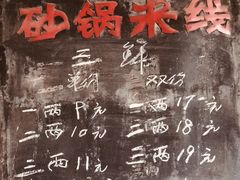 砂锅米线
三鲜
单份 双份
一两9元 一两17元
二两10元 二两18元
三两11元 三两19元